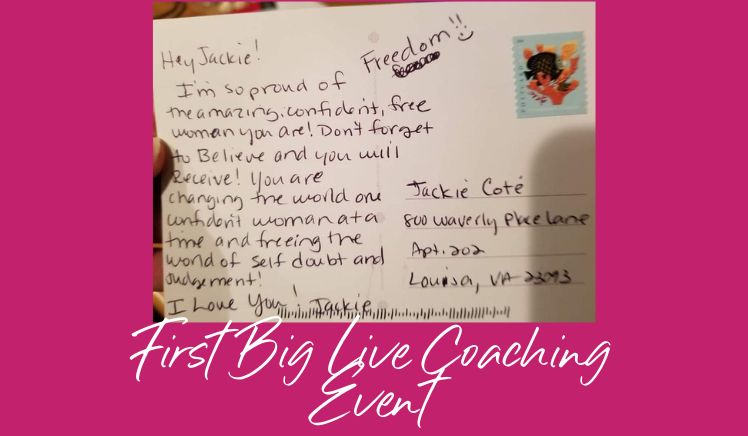 Hey Jackie!
Freedom!!
I'm so proud of
the amazing, confident, free
woman you are! Don't forget
to Believe and you will
Receive! You are
changing the world one
confident woman at a
time and freeing the
world of self doubt and
Judgement!
I Love You! Jackie
Jackie Coté
800 Waverly Place Lane
Apt. 202
Louisa, VA 23093
First Big Live Coaching
Event